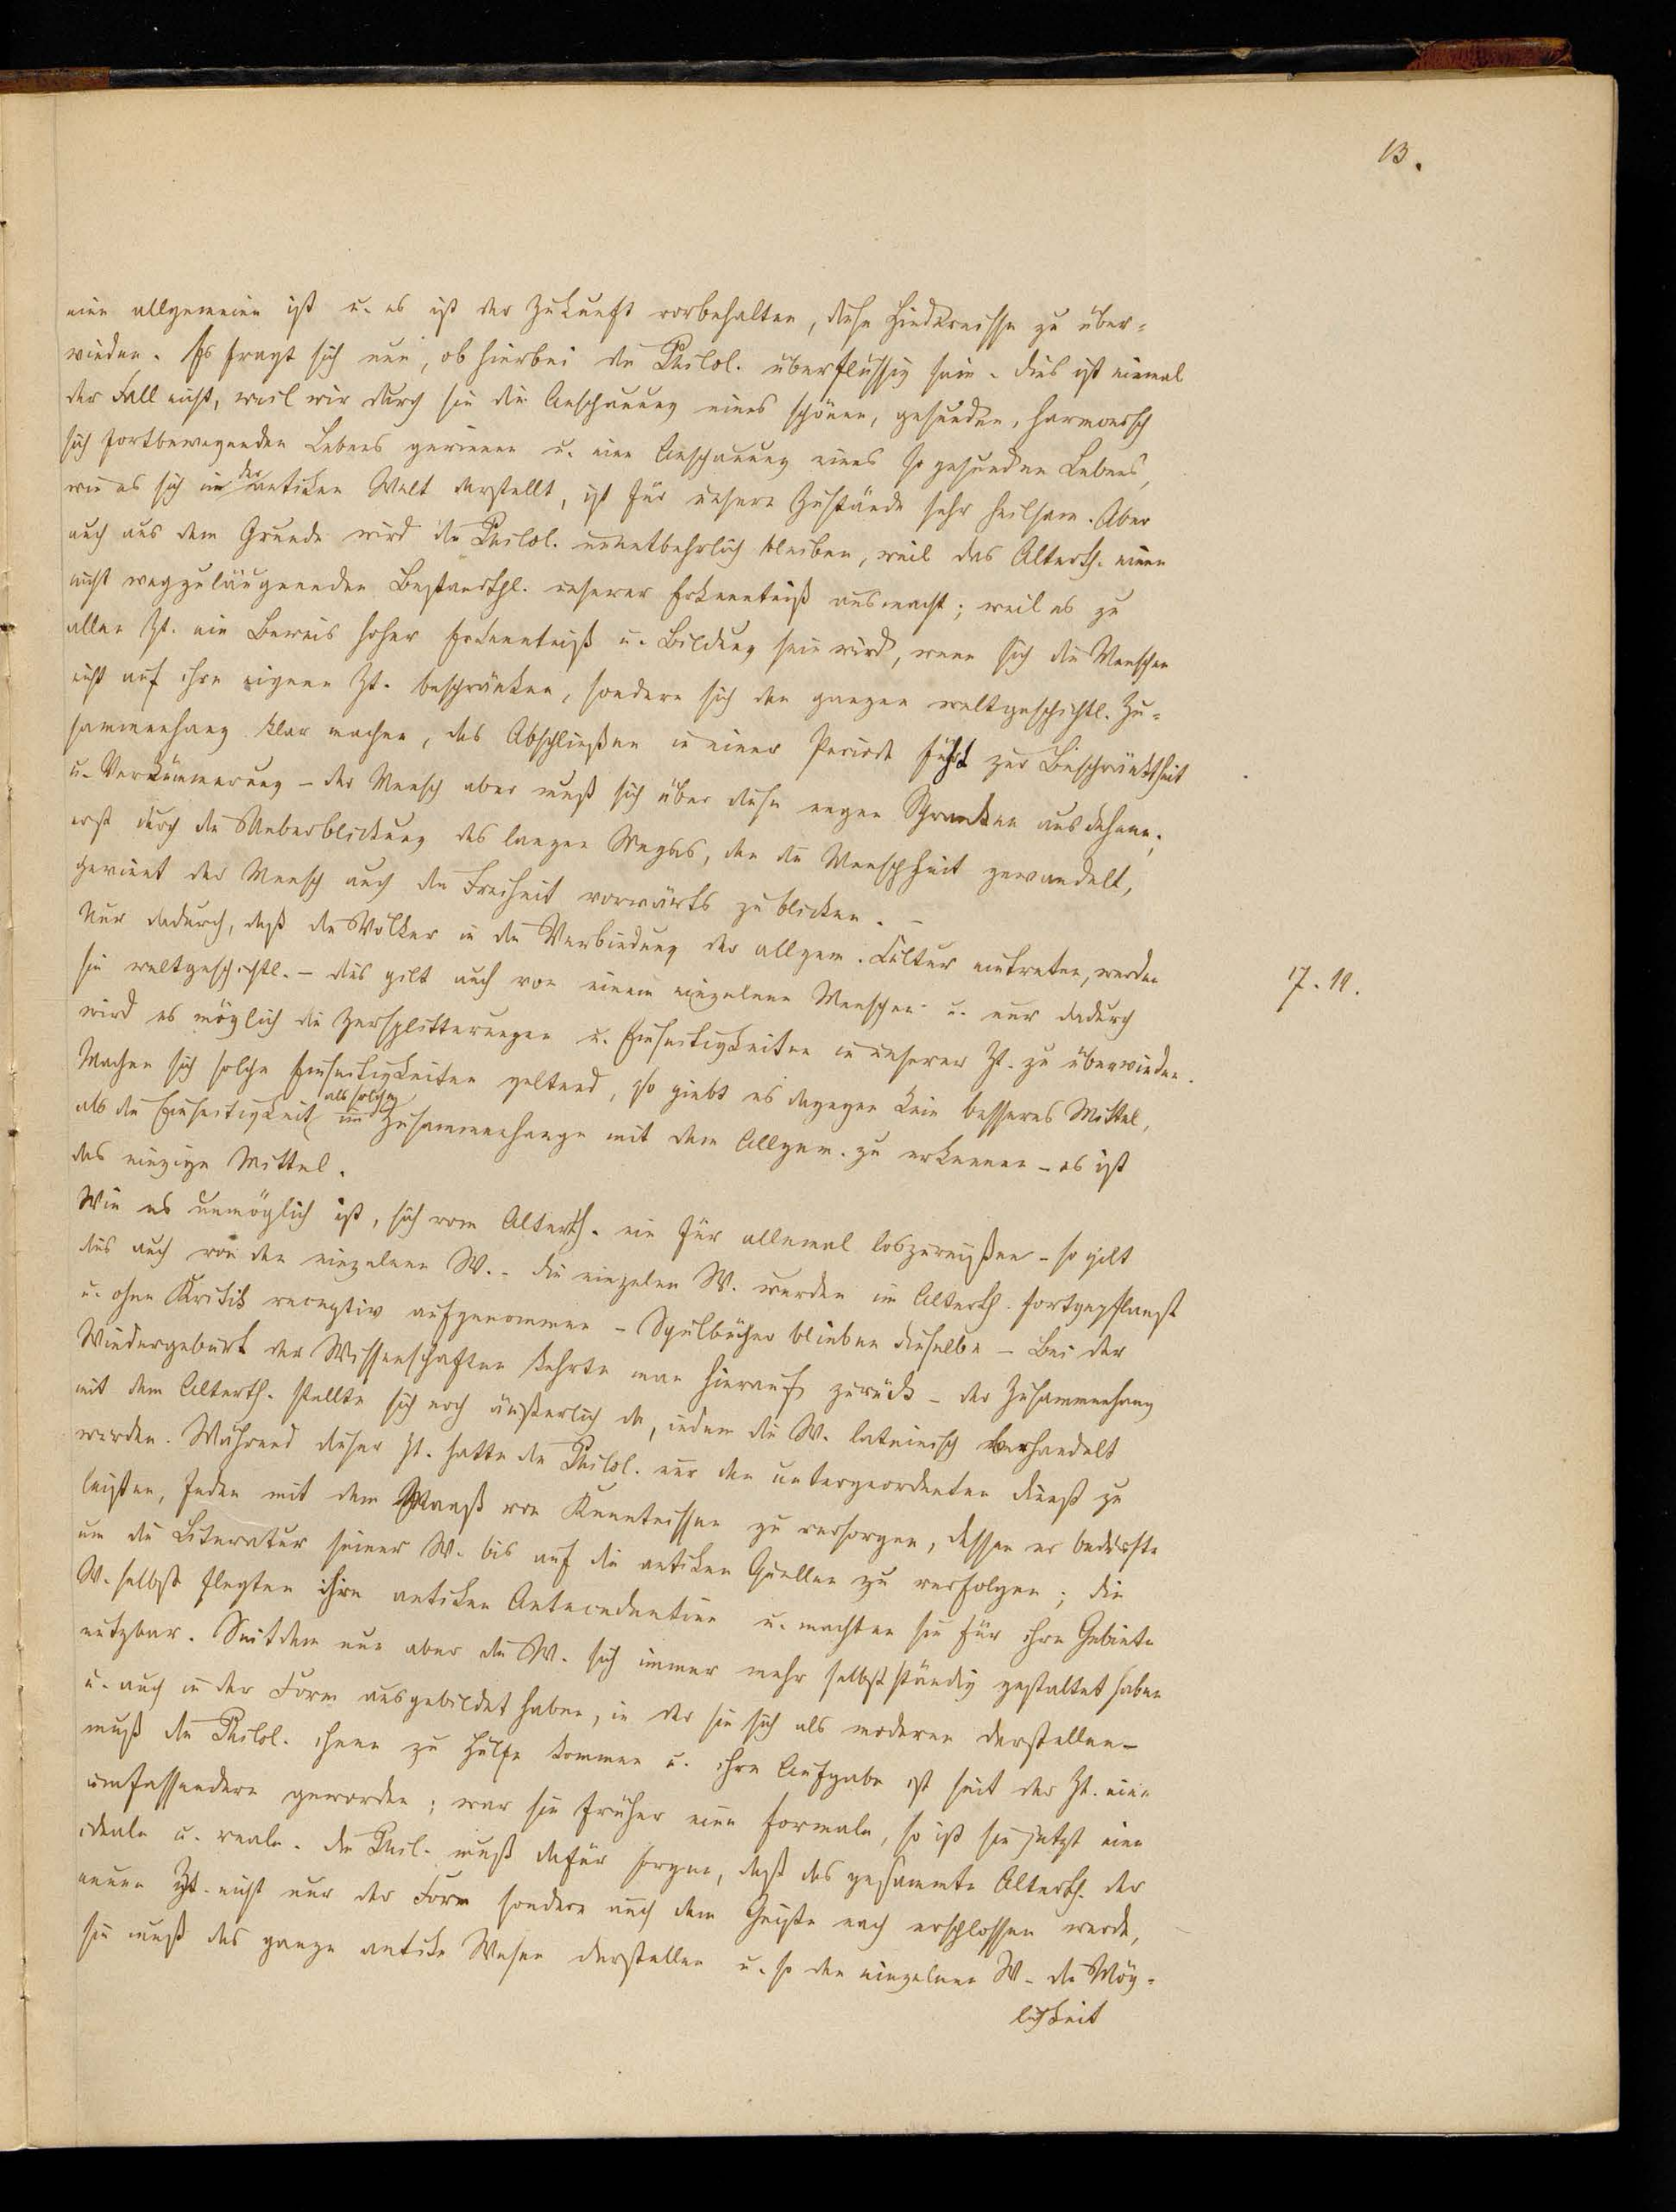 13.
eine allgemeine ist u. es ist der Zukunft vorbehalten, diese Hindernisse zu über-
winden. Es fragt sich nun, ob hierbei die Philol. überflüssig sein. Dies ist einmal
der Fall nicht, weil wir durch sie die Anschauung eines schönen, gesunden, harmonisch
sich fortbewegenden Lebens gewinnen u. eine Anschauung eines so gesunden Lebens,
wie es sich in der antiken Welt darstellt, ist für unsere Zustände sehr heilsam. Aber
auch aus dem Grunde wird die Philol. unentbehrlich bleiben, weil das Alterth. einen
nicht wegzuläugnenden Bestandthl. unserer Erkenntniß ausmacht; weil es zu
allen Zt. ein Beweis hoher Erkenntniß u. Bildung sein wird, wenn sich die Menschen
nicht auf ihre eigene Zt. beschränken, sondern sich den ganzen weltgeschichtl. Zu-
sammenhang klar machen, das Abschließen in einer Periode führt zur Beschränktheit
u. Verkümmerung – der Mensch aber muß sich über diese engen Schranken ausdehnen;
erst durch die Ueberblickung des langen Weges, den die Menschheit gewandelt,
gewinnt der Mensch auch die Freiheit vorwärts zu blicken. –
Nur dadurch, daß die Völker in die Verbindung der allgem. Cultur eintreten, werden
sie weltgeschichtl. – dies gilt auch von einem einzelnen Menschen u. nur dadurch
17. 11.
wird es möglich die Zersplitterungen u. Einseitigkeiten in unserer Zt. zu überwinden.
Machen sich solche Einseitigkeiten geltend, so giebt es dagegen kein besseres Mittel,
als die Einseitigkeit als solche im Zusammenhange mit dem Allgem. zu erkennen – es ist
das einzige Mittel.
Wie es unmöglich ist, sich vom Alterth. ein für allemal loszureißen – so gilt
dies auch von den einzelnen W. – die einzelen W. wurden im Alterth. fortgepflanzt
u. ohne Kritik receptiv aufgenommen – Schulbücher blieben dieselbe – Bei der
Wiedergeburt der Wissenschaften kehrte man hierauf zurück – der Zusammenhang
mit dem Alterth. stellte sich noch äußerlich da, indem die W. lateinisch behandelt
wurden. Während dieser Zt. hatte die Philol. nur den untergeordneten Dienst zu
leisten, Jeden mit dem Maaß von Kenntnissen zu versorgen, dessen er bedürfte
um die Literatur seiner W. bis auf die antiken Quellen zu verfolgen; die
W. selbst flegten ihre antiken Antecedentien u. machten sie für ihre Gebiete
nutzbar. Seitdem nun aber die W. sich immer mehr selbstständig gestaltet haben
u. auch in der Form ausgebildet haben, in der sie sich als moderne darstellen –
muß die Philol. ihnen zu Hülfe kommen u. ihre Aufgabe ist seit der Zt. eine
umfassendere geworden; war sie früher eine formale, so ist sie jetzt eine
ideale u. reale. Die Phil. muß dafür sorgen, daß das gesammte Alterth. der
neuen Zt. nicht nur der Form sondern auch dem Geiste nach erschlossen werde,
sie muß das ganze antike Wesen darstellen u. so den einzelnen W. die Mög-
lichkeit